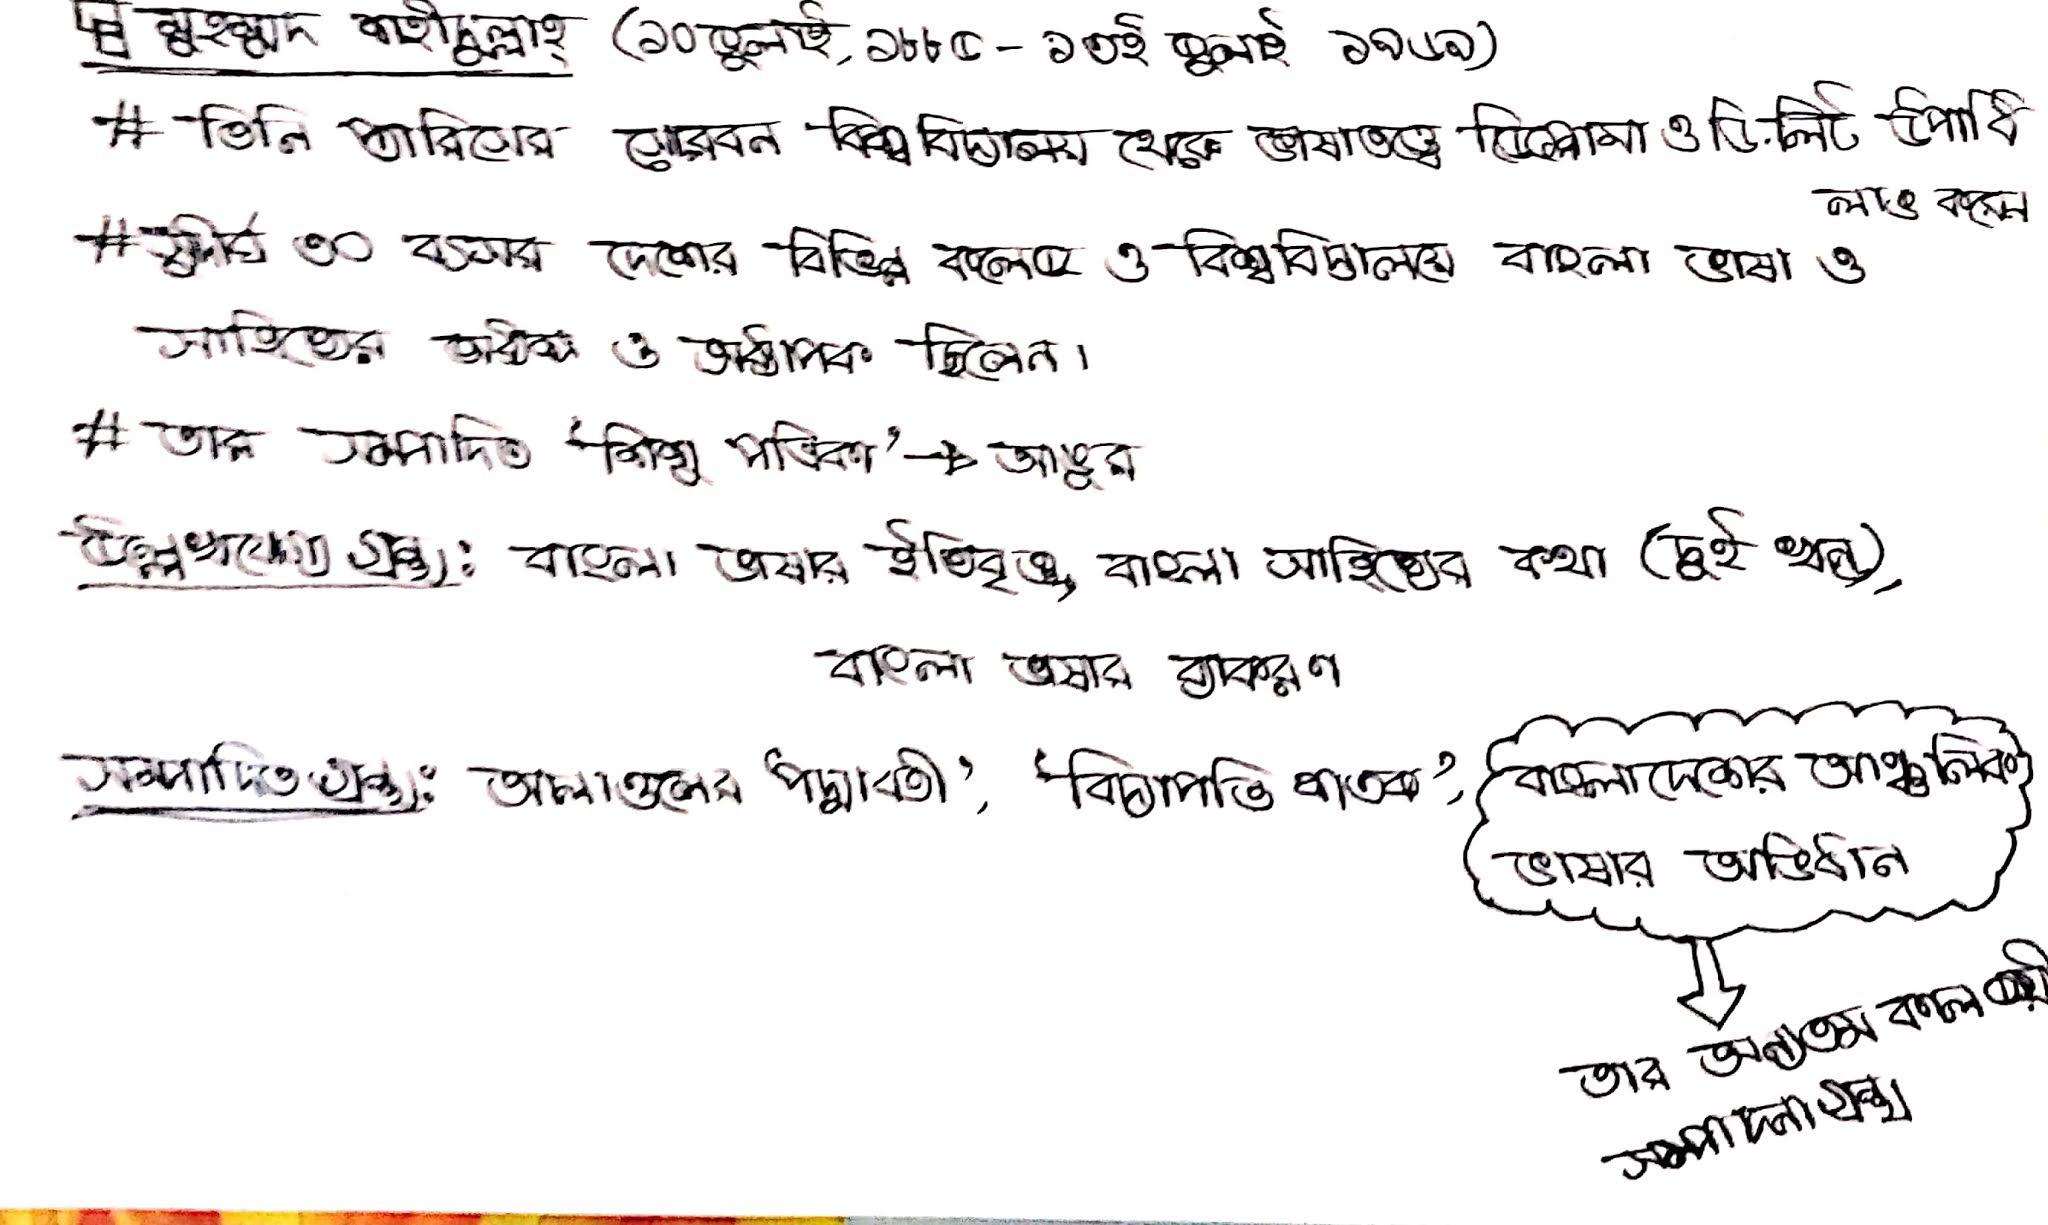 মুহম্মদ শহীদুল্লাহ্ (১০ জুলাই, ১৮৮৫ - ১৩ই জুলাই ১৯৬৯)
# তিনি প্যারিসের সোরবন বিশ্ববিদ্যালয় থেকে ভাষাতত্ত্বে ডিপ্লোমা ও ডি.লিট উপাধি
লাভ করেন
# সুদীর্ঘ ৩০ বৎসর দেশের বিভিন্ন কলেজ ও বিশ্ববিদ্যালয়ে বাংলা ভাষা ও
সাহিত্যের অধ্যক্ষ ও অধ্যাপক ছিলেন।
# তার সম্পাদিত 'শিশু পত্রিকা' → আঙুর
উল্লেখযোগ্য গ্রন্থ: বাংলা ভাষার ইতিবৃত্ত, বাংলা সাহিত্যের কথা (দুই খন্ড),
বাংলা ভাষার ব্যাকরণ
সম্পাদিত গ্রন্থ: আলাওলের 'পদ্মাবতী', 'বিদ্যাপতি শতক', বাংলাদেশের আঞ্চলিক
ভাষার অভিধান
তার অন্যতম কালজয়ী
সম্পাদনা গ্রন্থ